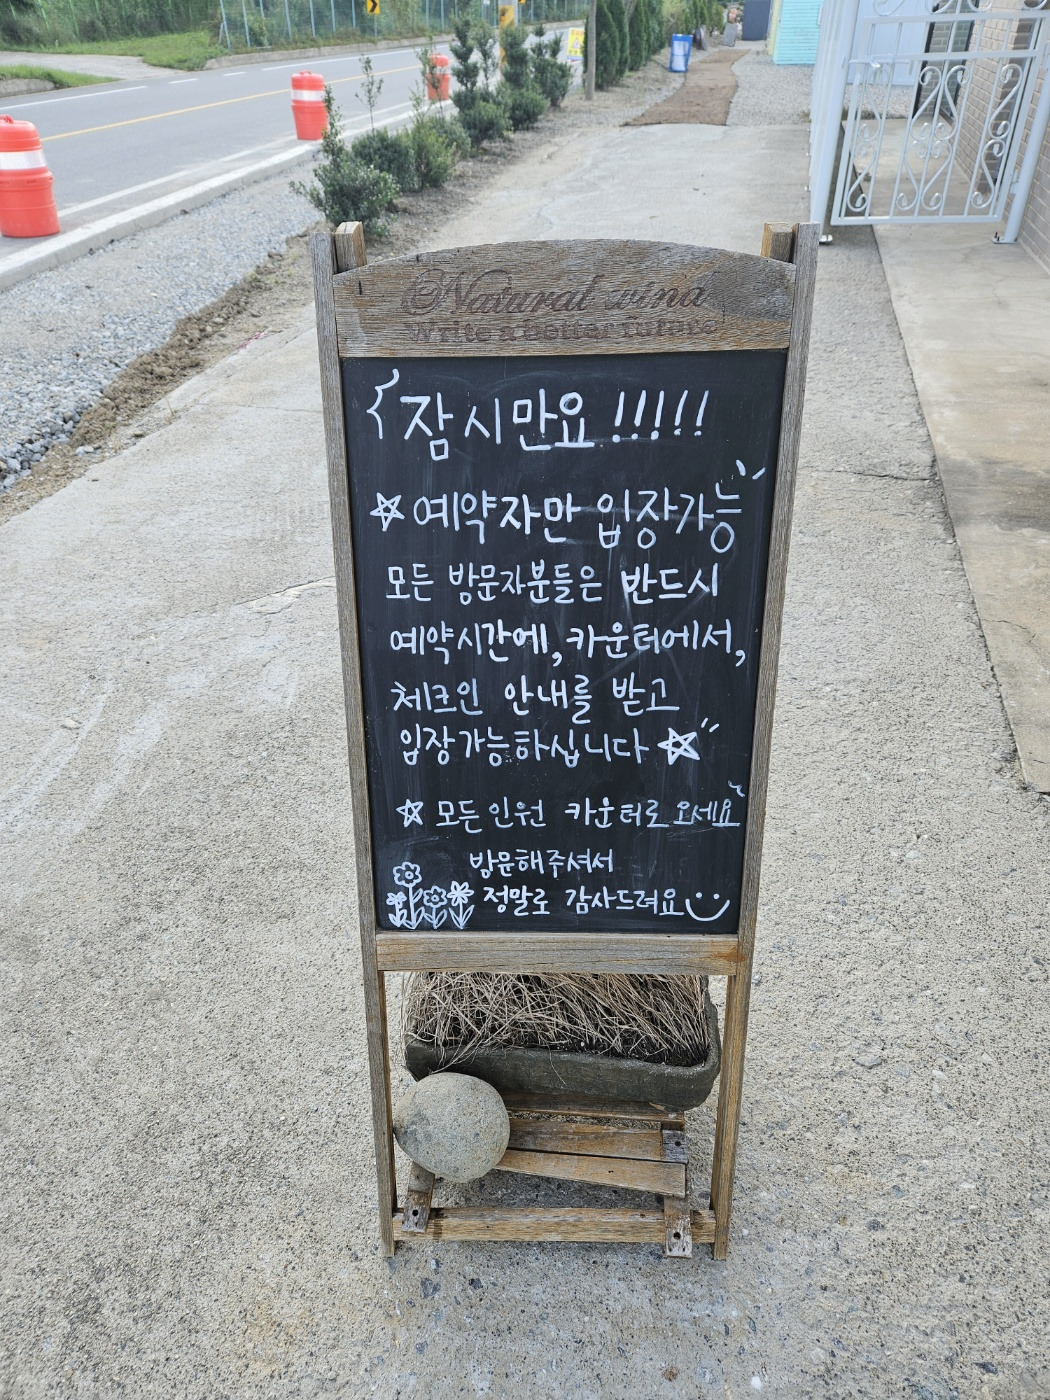 Natural wind
Write a better future
잠시만요 !!!!!
☆예약자만 입장가능
모든 방문자분들은 반드시
예약시간에, 카운터에서,
체크인 안내를 받고
입장가능하십니다 ☆
☆ 모든 인원 카운터로 오세요~
방문해주셔서
정말로 감사드려요